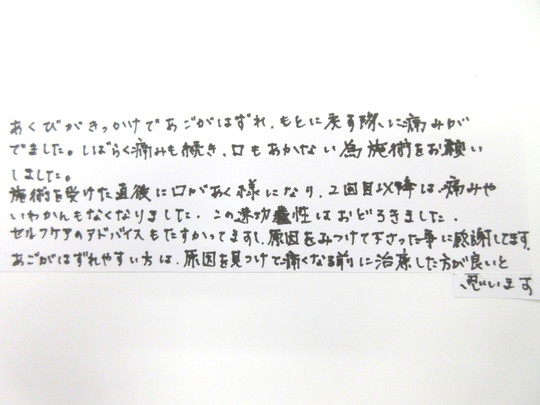 あくびがきっかけであごがはずれ、もとに戻す際に痛みが
でました。しばらく痛みも続き、口もあかない為施術をお願い
しました。
施術を受けた直後に口があく様になり、2回目以降は痛みや
いわかんもなくなりました。この速効性はおどろきました。
セルフケアのアドバイスもたすかってますし、原因をみつけて下さった事に感謝してます。
あごがはずれやすい方は、原因を見つけて痛くなる前に治療した方が良いと
思います